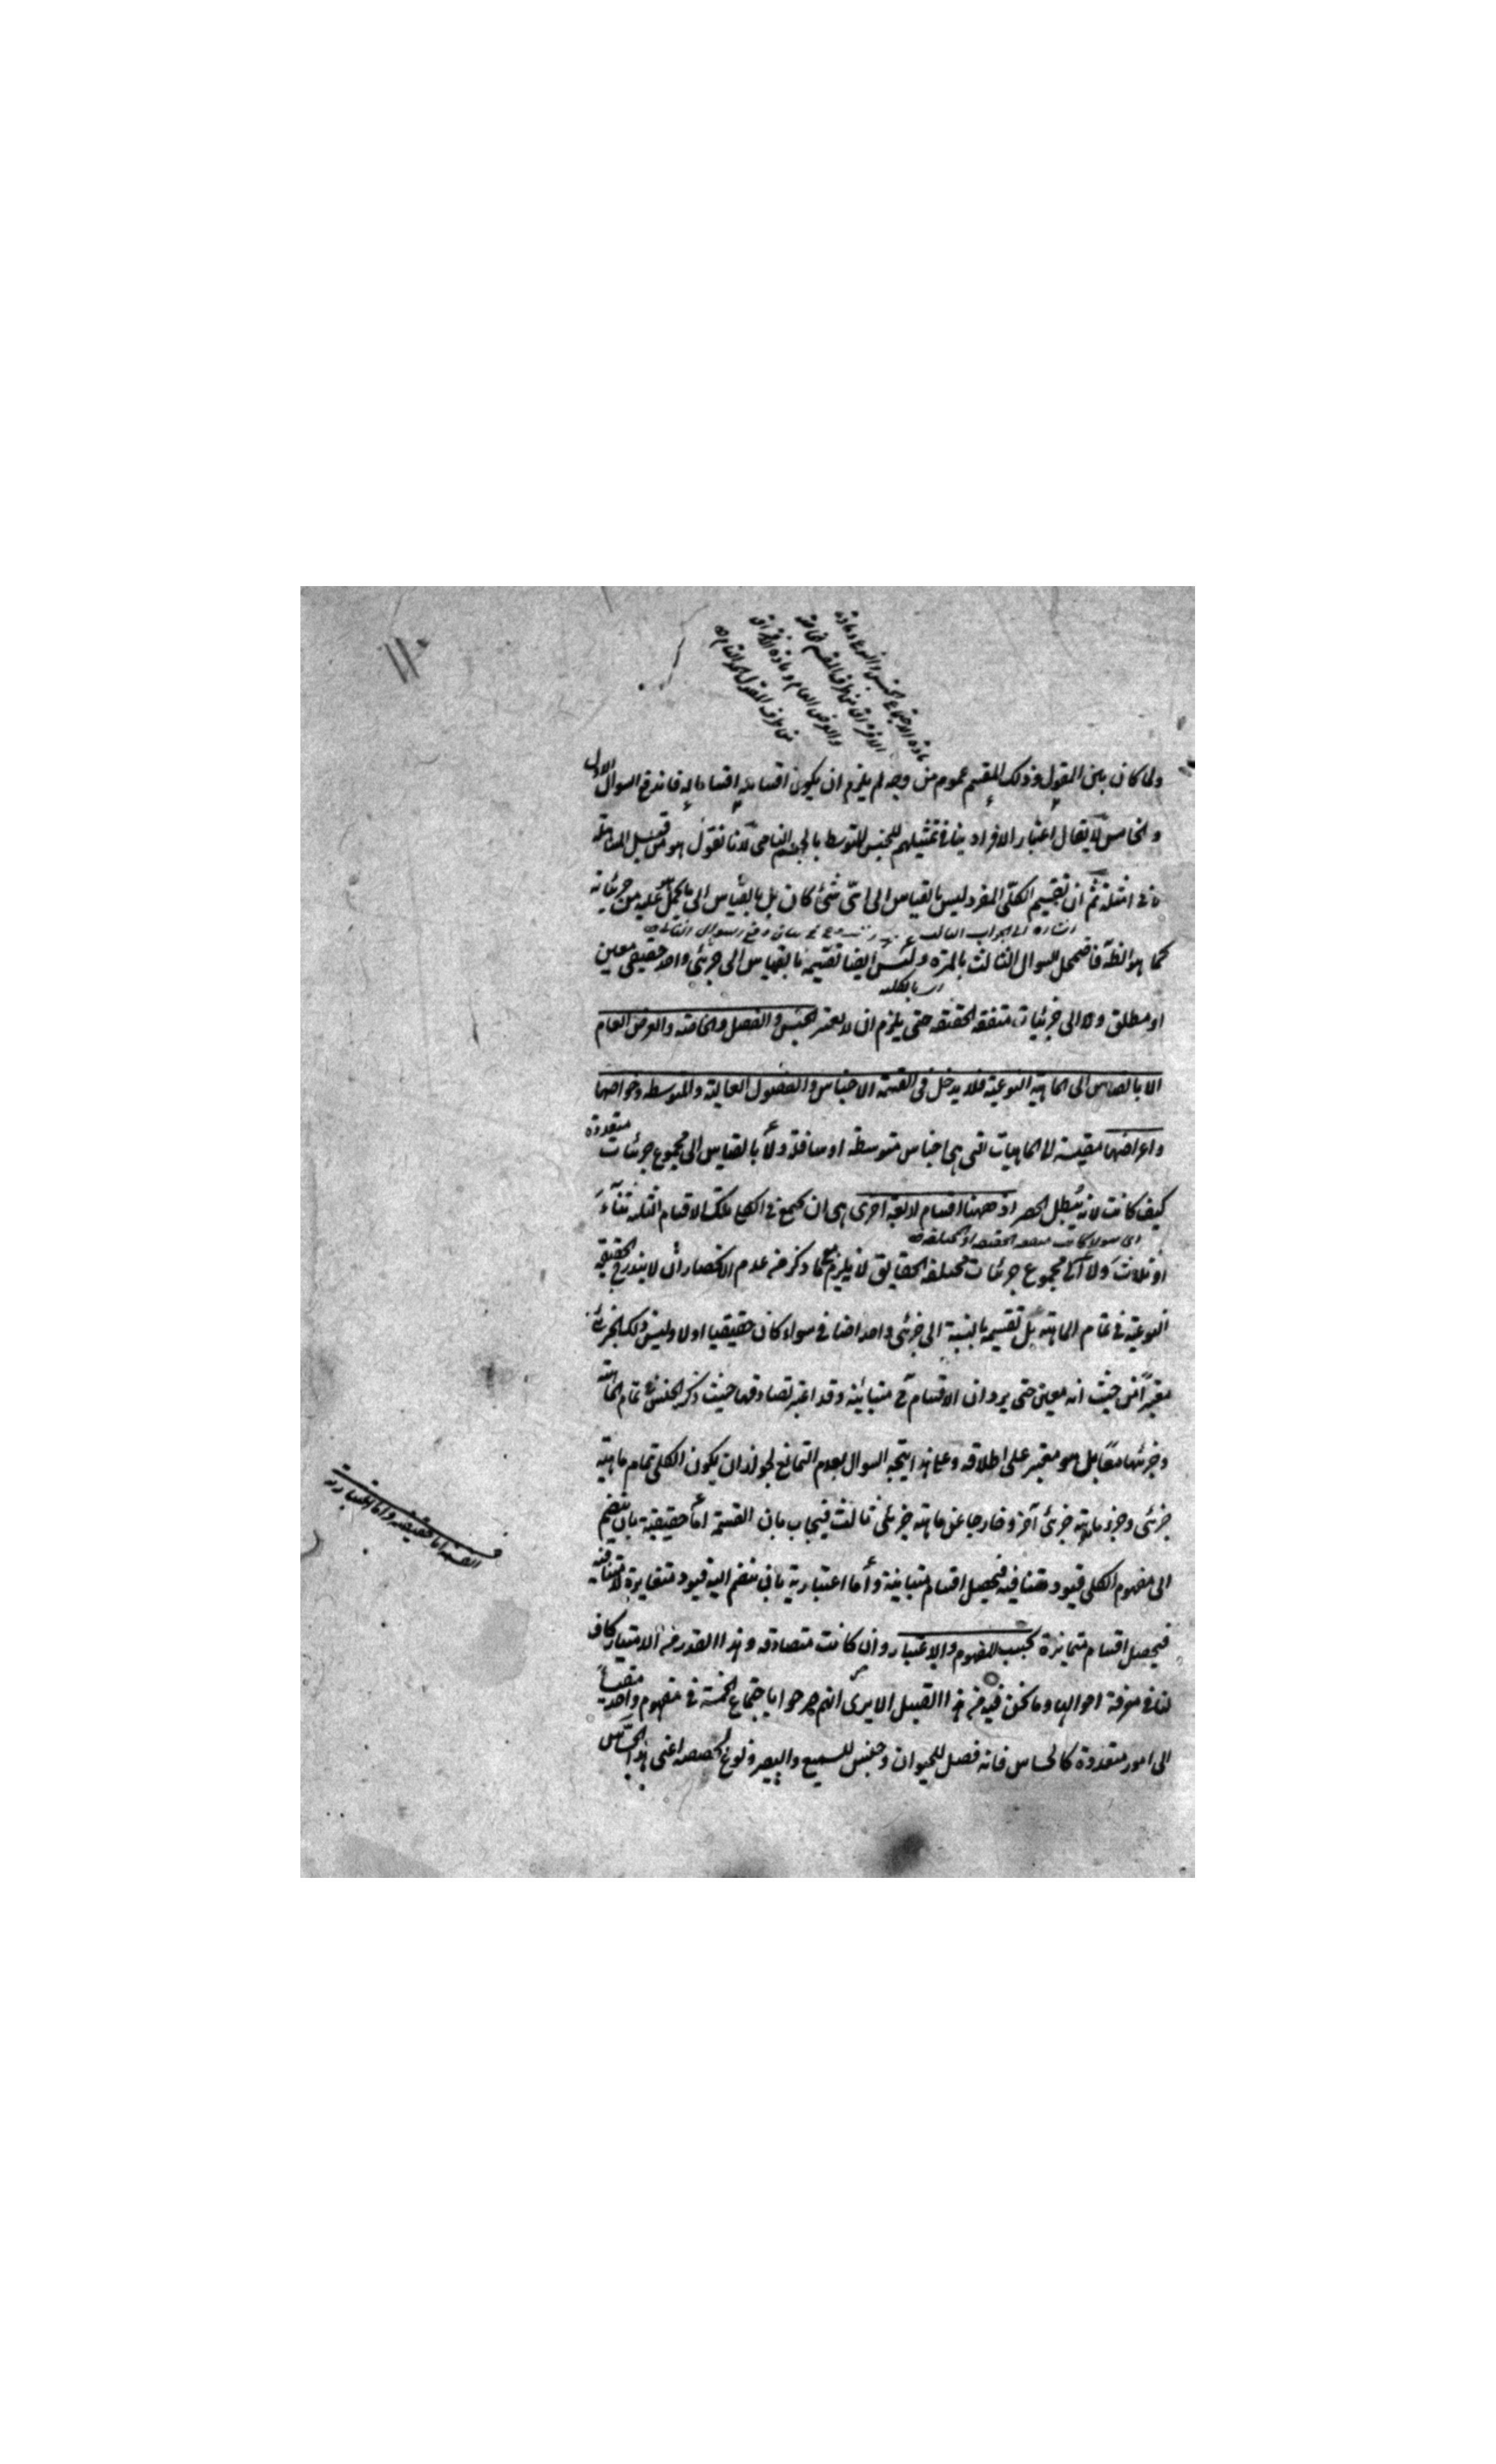 مادة الاجتماع الجنس والنوع ومادة
الافتراق من طرف المقسم الخاصة
والعرض العام ومادة الافتراق
من طرف المقول الحد التام
ولما كان بين المقول وذلك المقسم عموم من وجه لم يلزم ان يكون اقسامه اقساما له فاندفع السوال الاول
والخامس لا يقال اعتبار الافراد ينافي تمثيلهم للجنس المتوسط بالجسم النامي لانا نقول هو من قبيل المساهلة
في امثلة ثم ان تقسيم الكلي المفرد ليس بالقياس الى اي شئ كان بل بالقياس الى ما يحمل عليه من جزئياته
اشارة الى الجواب الثالث دفع السوال الثالث
كما هو الظ فاضمحل السوال الثالث بالمرة وليس ايضا تقسيمه بالقياس الى جزئي واحد حقيقي معين
اي بالكلية
او مطلق ولا الى جزئيات متفقة الحقيقة حتى يلزم ان لا يعتبر الجنس والفصل والخاصة والعرض العام
الا بالقياس الى الماهية النوعية فلا يدخل في القسمة الاجناس والفصول العالية والمتوسطة وخواصها
واعراضها مقيسة الى الماهيات التي هي اجناس متوسطة او سافلة ولا بالقياس الى مجموع جزئيات متعددة
كيف كانت لانه يبطل الحصر اذ ههنا اقسام اربعة اخرى هي ان يجتمع في الكلي تلك الاقسام الثلثة ثناء
اي سواء كانت متفقة الحقيقة او مختلفة
او ثلاث ولا الى مجموع جزئيات مختلفة الحقايق لا يلزم مع ما ذكر من عدم الانحصار ان لا يندرج الحقيقة
النوعية في تمام الماهية بل تقسيمه بالنسبة الى جزئي واحد اضافي سواء كان حقيقيا او لا وليس ذلك الجزئي
معتبرا من حيث انه معين حتى يرد ان الاقسام ح متباينة وقد اعتبر تصادقها حيث ذكر الجنس في تمام الماهية
وجزئها معا بل هو معتبر على اطلاقه وعلى هذا يتجه السوال بعدم التمانع لجواز ان يكون الكلي تمام ماهية
جزئي وجزء ماهية جزئي آخر وخارجا عن ماهية جزئي ثالث فيجاب بان القسمة اما حقيقية بان ينضم
الى مفهوم الكلي قيود متنافية فيحصل اقسام متباينة واما اعتبارية بان ينضم اليه قيود متغايرة لا متنافية
فيحصل اقسام متمايزة بحسب المفهوم والاعتبار وان كانت متصادقة وهذا القدر من الامتياز كاف
لنا في معرفة احوالها وما نحن فيه من هذا القبيل الا يرى انهم صرحوا باجتماع الخمسة في مفهوم واحد مقيسا
الى امور متعددة كالحساس فانه فصل للحيوان وجنس للسميع والبصير ونوع لحصصه اعني هذا الحساس
القسمة اما حقيقية واما اعتبارية